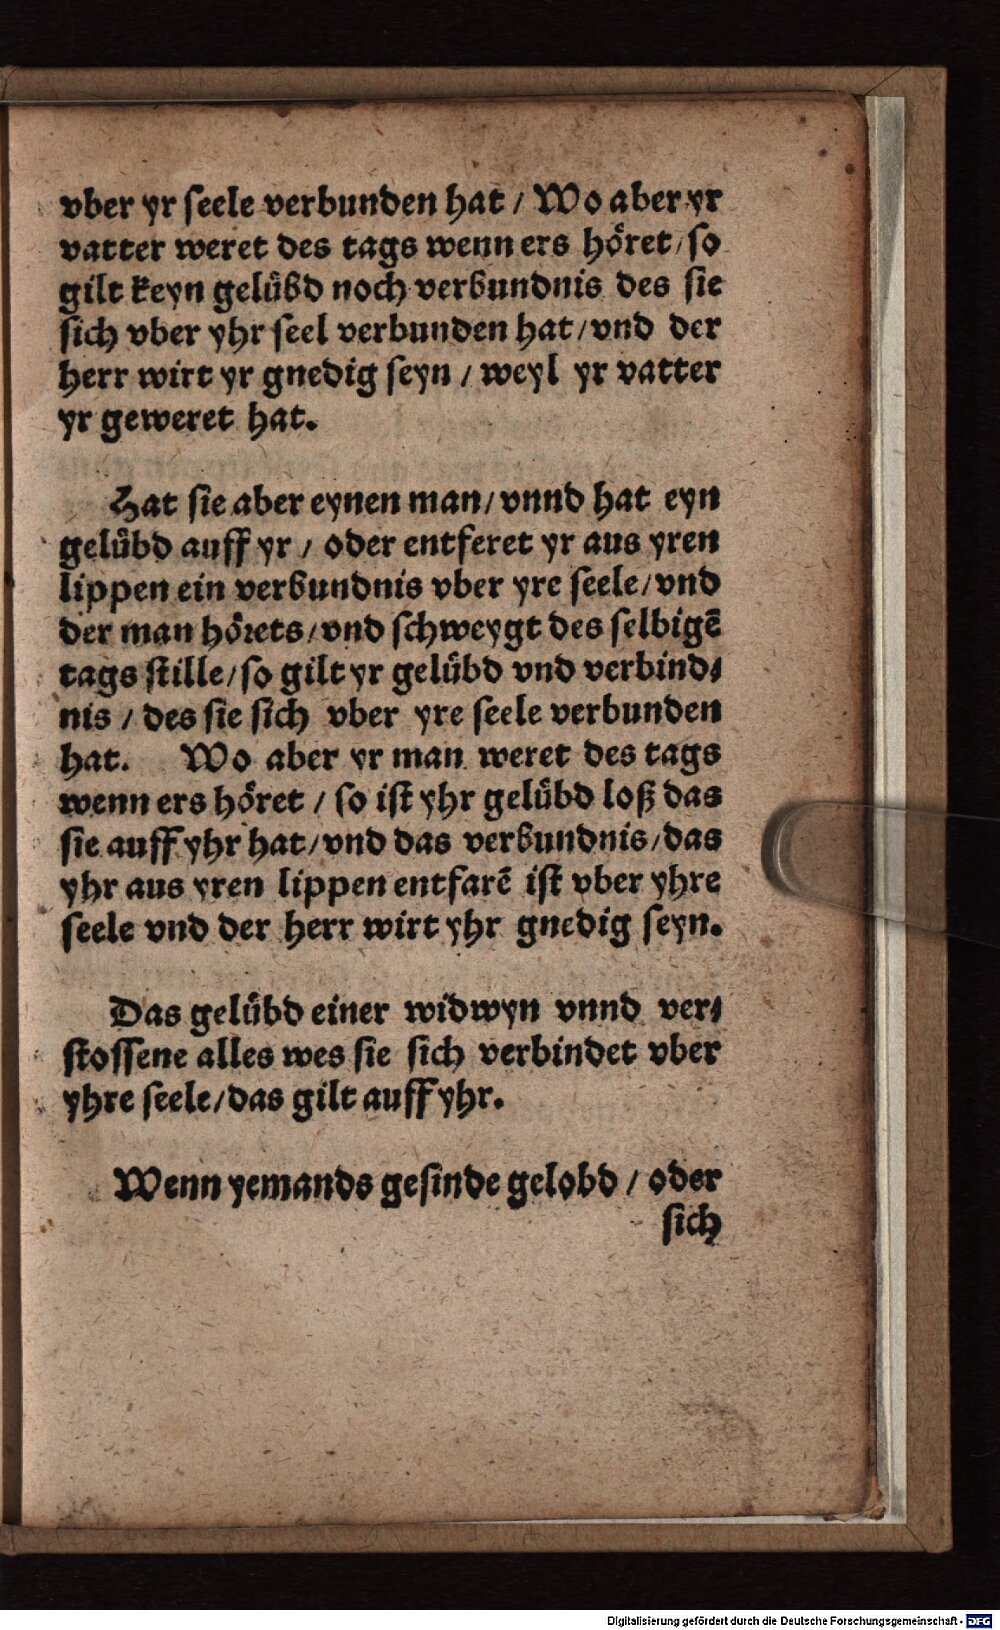 vber yr seele verbunden hat / Wo aber yr
vatter weret des tags wenn ers hoͤret / so
gilt keyn geluͤbd noch verbundnis des sie
sich vber yhr seel verbunden hat / vnd der
herr wirt yr gnedig seyn / weyl yr vatter
yr geweret hat.
Hat sie aber eynen man / vnnd hat eyn
geluͤbd auff yr / oder entferet yr aus yren
lippen ein verbundnis vber yre seele / vnd
der man hoͤrets / vnd schweygt des selbigē
tags stille / so gilt yr geluͤbd vnd verbind⸗
nis / des sie sich vber yre seele verbunden
hat. Wo aber yr man weret des tags
wenn ers hoͤret / so ist yhr geluͤbd loß das
sie auff yhr hat / vnd das verbundnis / das
yhr aus yren lippen entfarē ist vber yhre
seele vnd der herr wirt yhr gnedig seyn.
Das geluͤbd einer widwyn vnnd ver⸗
stossene alles wes sie sich verbindet vber
yhre seele / das gilt auff yhr.
Wenn yemands gesinde gelobd / oder
sich
Digitalisierung gefördert durch die Deutsche Forschungsgemeinschaft - DFG